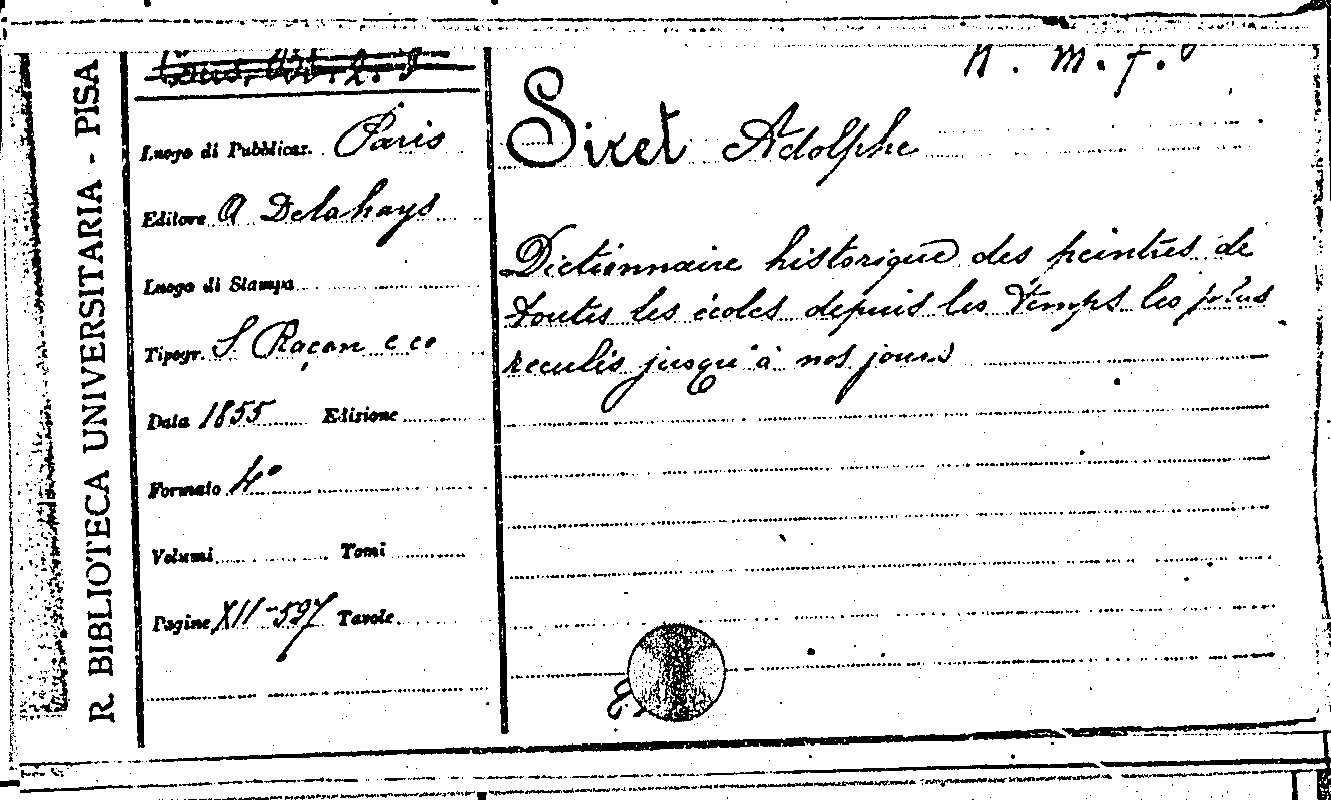 R. BIBLIOTECA UNIVERSITARIA - PISA
N. m. f.
Luogo di Pubblicaz. Paris
Editore A Delahays
Luogo di Stampa
Tipogr. S Raçon e co
Data 1855 Edizione
Formato 4°
Volumi Tomi
Pagine XII-597 Tavole
Siret Adolphe
Dictionnaire historique des peintres de
toutes les écoles depuis les temps les plus
reculés jusqu'à nos jours